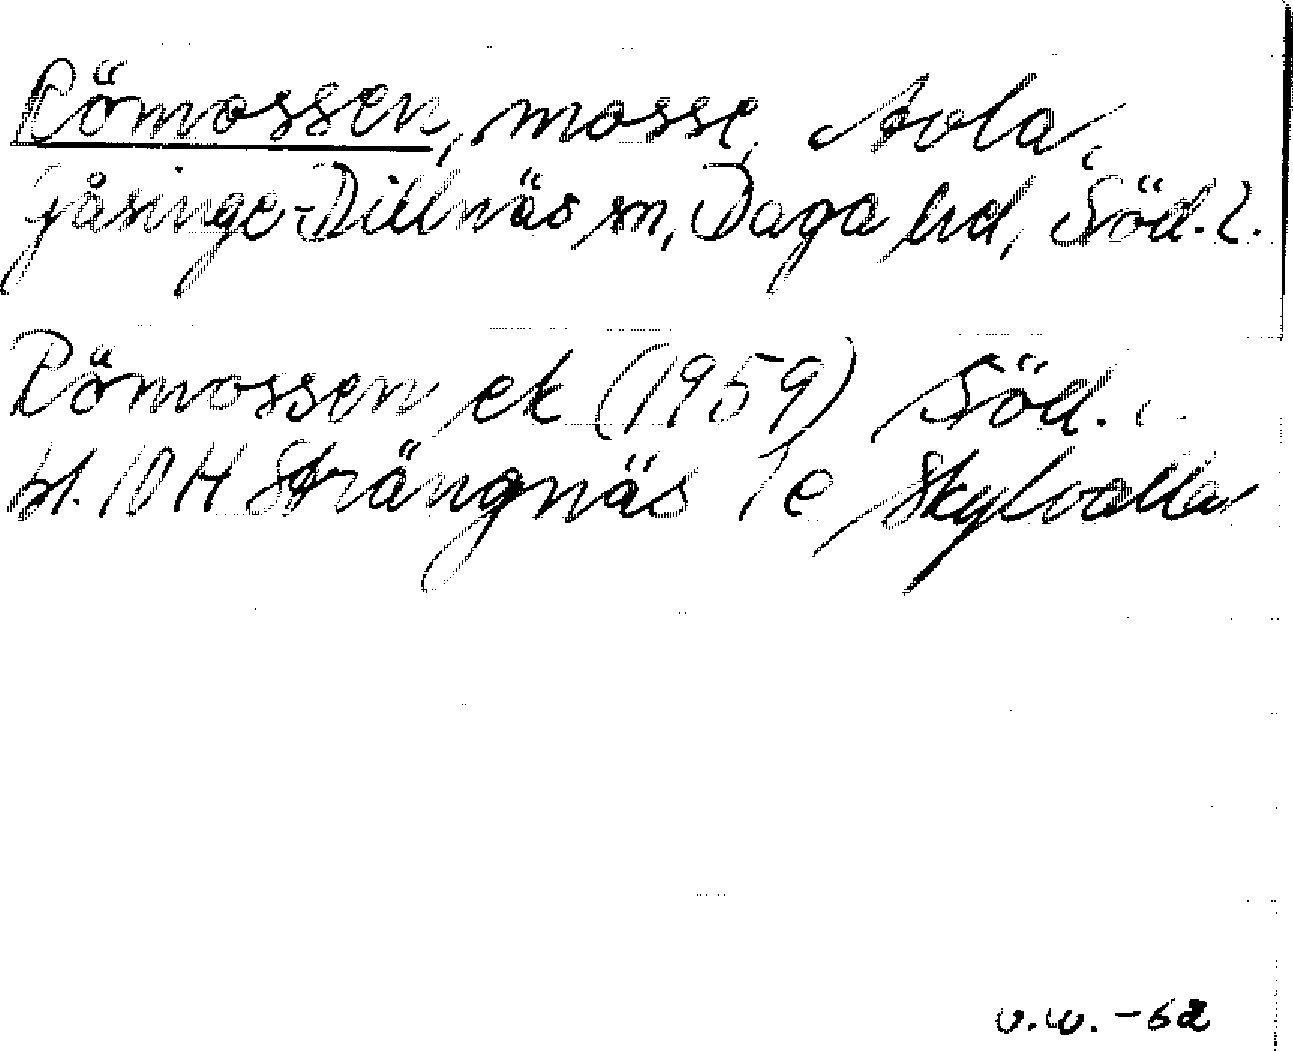 Römossen, mosse, Avla,
Gåsinge-Dillnäs sn, Daga hd, Söd.l.
Römossen ek (1959) Söd.
bl. 10 H Strängnäs 1 e Skylvalla
v.w. -62